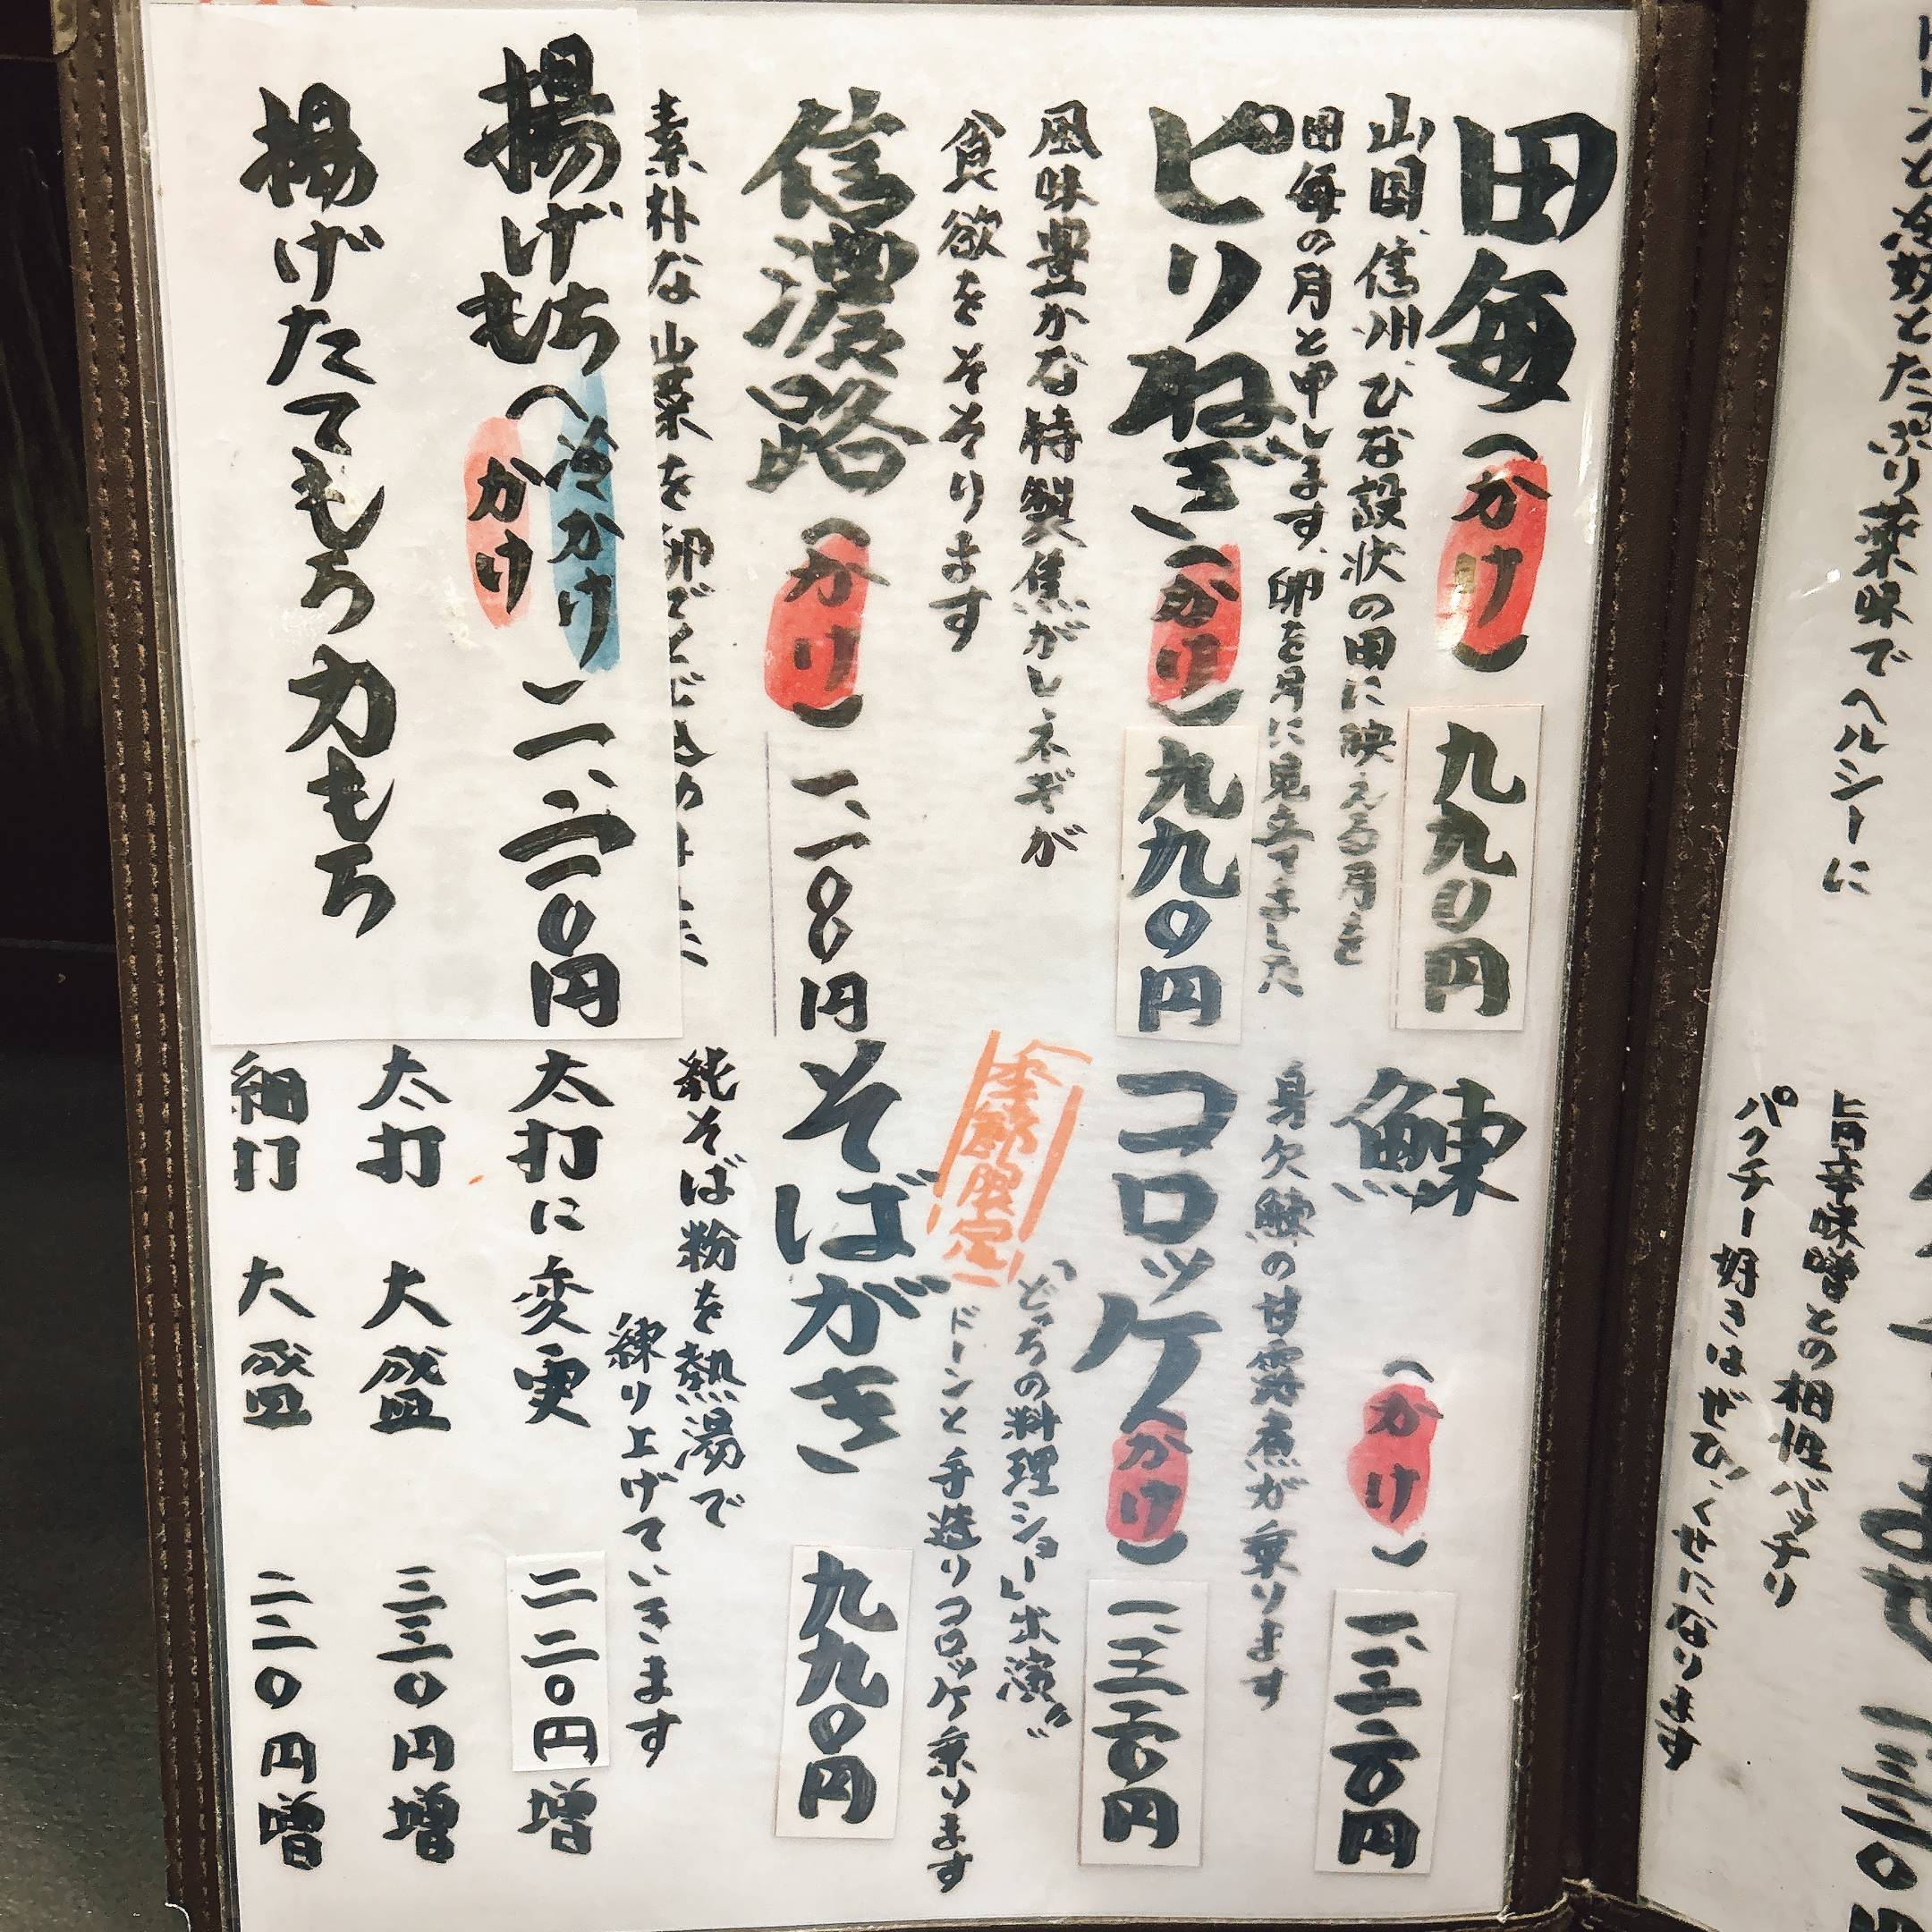 田毎(かけ) 九九〇円
山国、信州、ひな設状の田に映える月を
田毎の月と申します、卵を月に見立てました
ピリねぎ(かけ) 九九〇円
風味豊かな特製焦がしネギが
食欲をそそります
信濃路(かけ) 一、一〇〇円
素朴な山菜を卵でとじ込めました
揚げもち(冷かけ かけ) 一、二一〇円
揚げたてもちもち力もち
鰊(かけ)
身欠鰊の甘露煮が乗ります
コロッケ(かけ)
季節限定
"どっちの料理ショー"出演
ドーンと手造りコロッケ乗ります
そばがき 九九〇円
純そば粉を熱湯で
練り上げていきます
太打に変更 二二〇円増
太打 大盛 三三〇円増
細打 大盛 二二〇円増
とたっぷり薬味でヘルシーに
旨辛味噌との相性バッチリ
パクチー好きはぜひ、くせになります